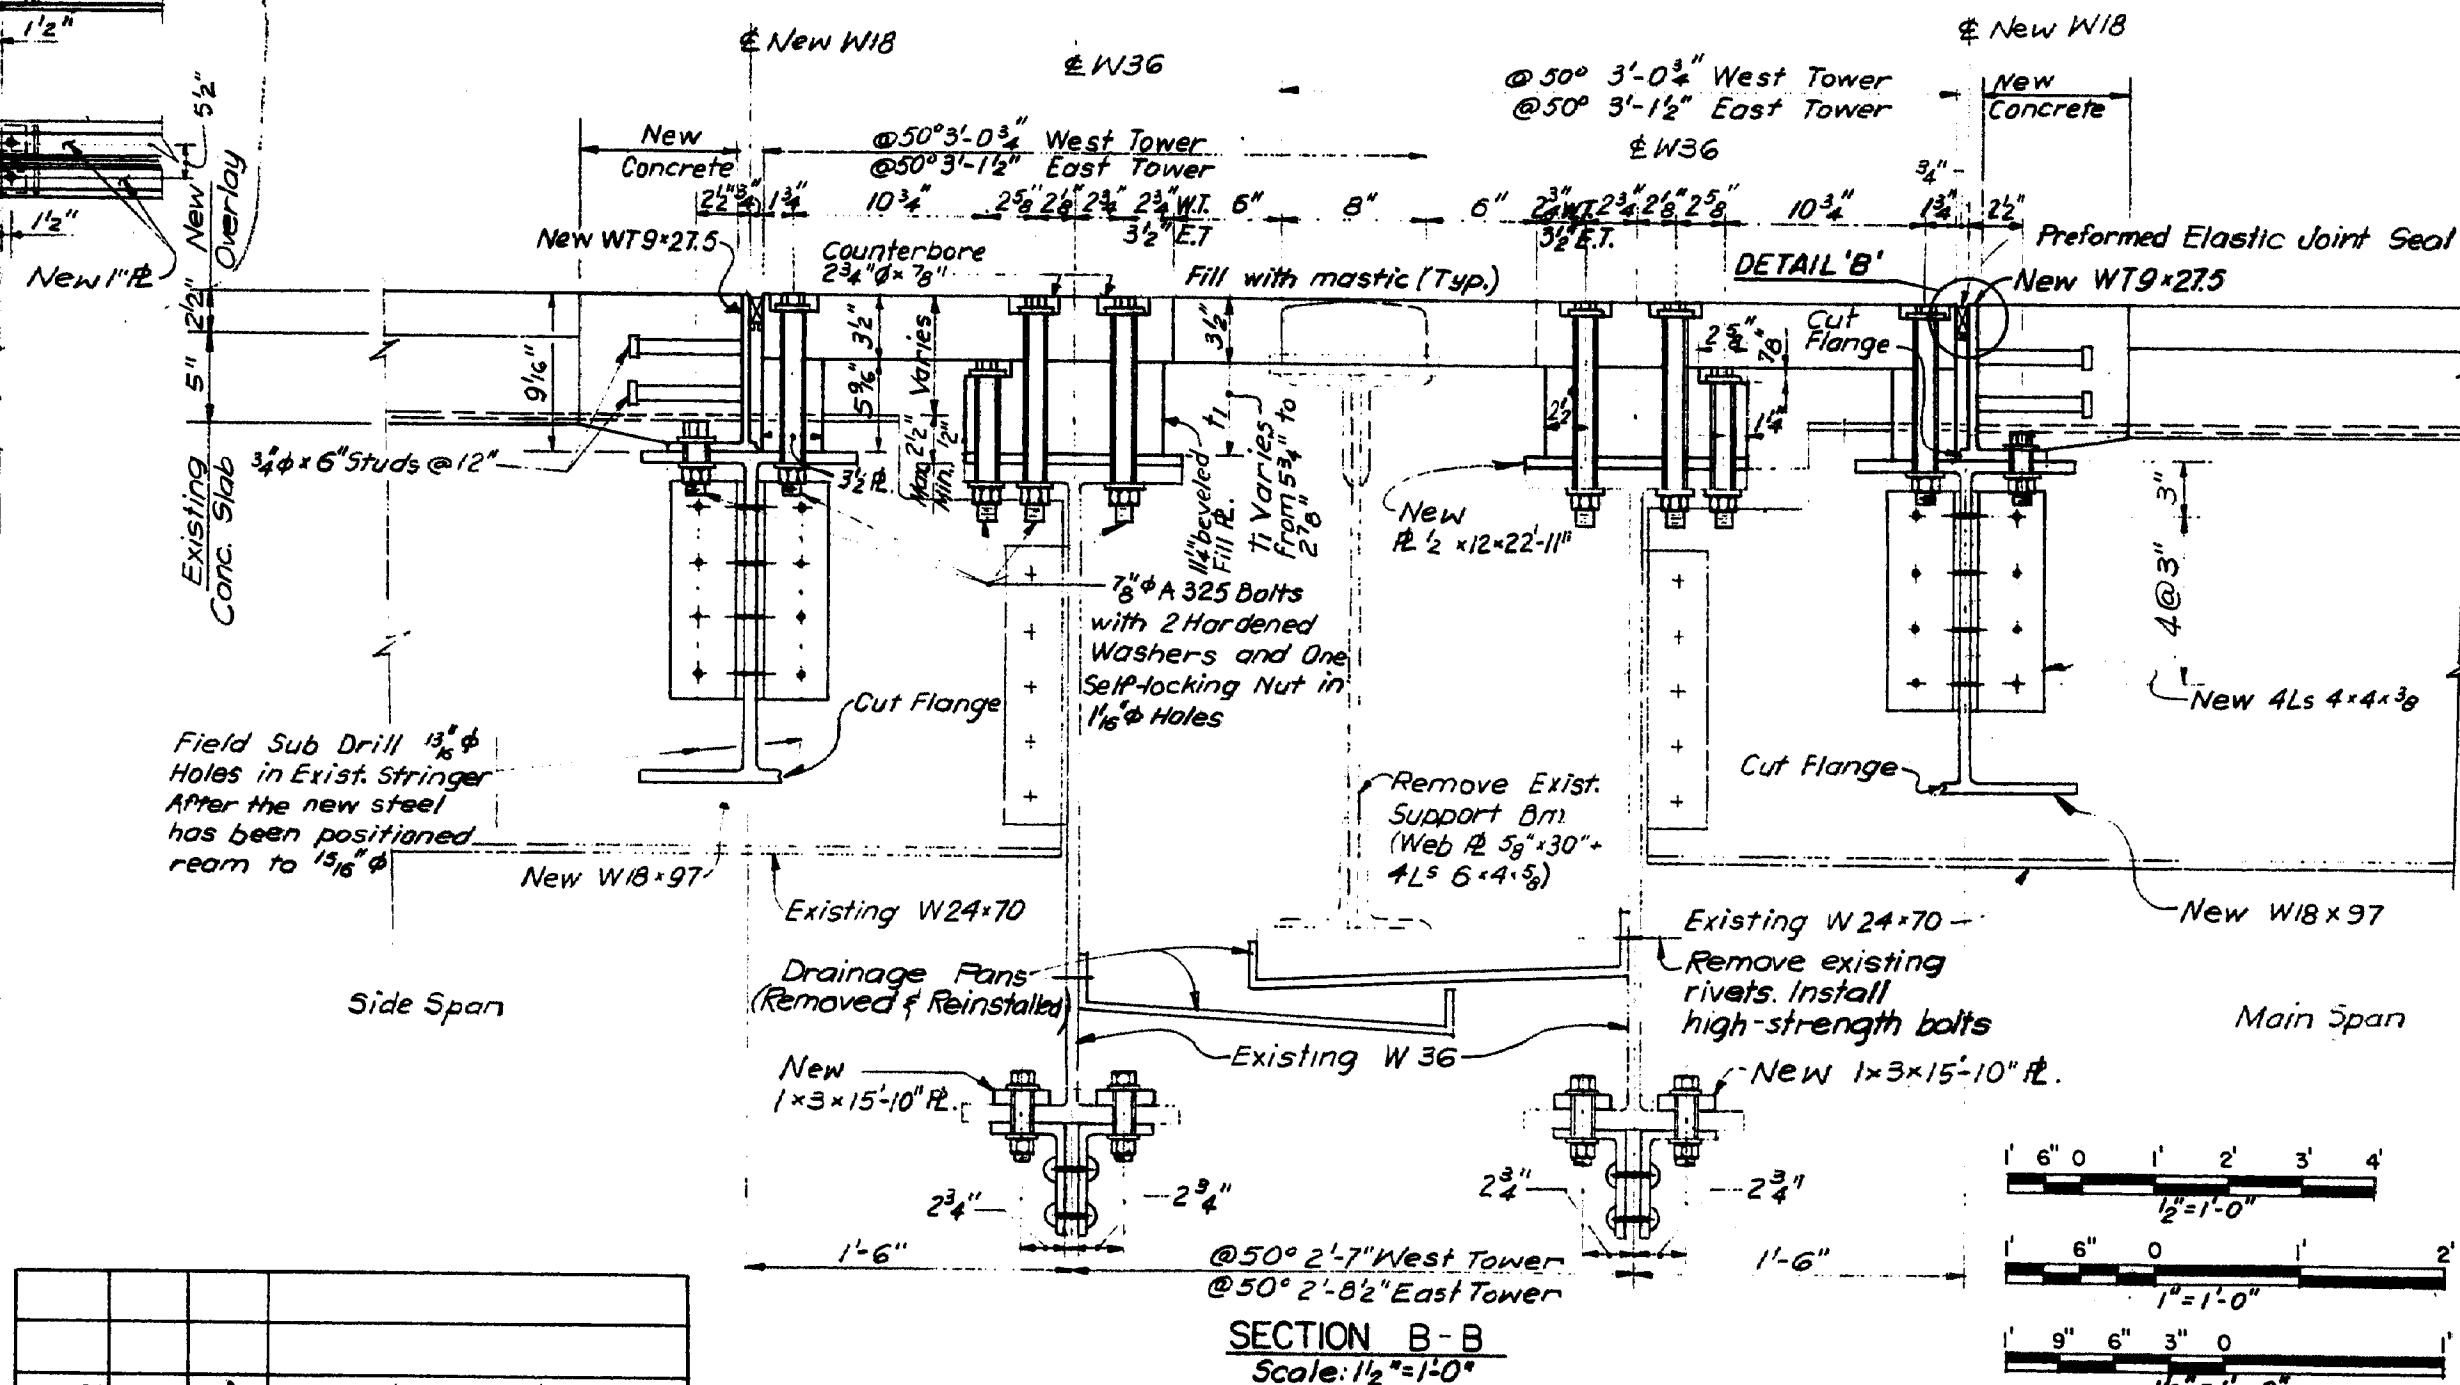 1½"
5½"
New
Overlay
2½"
5"
Existing
Conc. Slab
1½"
New 1" ℄
℄ New W18
℄ W36
@50° 3'-0¾" West Tower
@50° 3'-1½" East Tower
℄ W36
℄ New W18
New
Concrete
New
Concrete
@50° 3'-0¾" West Tower
@50° 3'-1½" East Tower
2½" ¾" 1¾" 10¾" 2⅝" 2⅛" 2¾" 2¾" W.T. 6" 8" 6" 2¾" W.T. 2¾" 2⅛" 2⅝" 10¾" 1¾" 2½"
¾"
3½" E.T
3½" E.T.
New WT9×27.5
Counterbore
2¾"φ × ⅞"
Fill with mastic (Typ.)
DETAIL 'B'
Preformed Elastic Joint Seal
New WT9×27.5
Cut
Flange
9 1/16"
3½"
5 9/16"
Varies
Max 2½"
Min. ½"
3½ PL
3½"
t1
1¼" beveled
Fill PL.
t1 Varies
from 5¾" to
2⅞"
2½"
⅞"
1¼"
¾φ × 6" Studs @ 12"
New
PL ½ × 12 × 22'-11"
3"
4@3"
⅞"φ A 325 Bolts
with 2 Hardened
Washers and One
Self-locking Nut in
1 1/16"φ Holes
Cut Flange
New 4Ls 4×4×⅜
Field Sub Drill 13/16"φ
Holes in Exist. Stringer
After the new steel
has been positioned
ream to 15/16"φ
Cut Flange
Remove Exist.
Support Bm.
(Web PL ⅝"×30"+
4Ls 6×4×⅝)
New W18×97
Existing W24×70
Existing W24×70
New W18×97
Drainage Pans
(Removed & Reinstalled)
Remove existing
rivets. Install
high-strength bolts
Side Span
Main Span
Existing W 36
New
1×3×15'-10" PL.
New 1×3×15'-10" PL.
2¾"
2¾"
2¾"
2¾"
1'-6"
@50° 2'-7" West Tower
@50° 2'-8½" East Tower
1'-6"
SECTION B-B
Scale: 1½"=1'-0"
1' 6" 0 1' 2' 3' 4'
½"=1'-0"
1' 6" 0 1' 2'
1"=1'-0"
1' 9" 6" 3" 0 1'